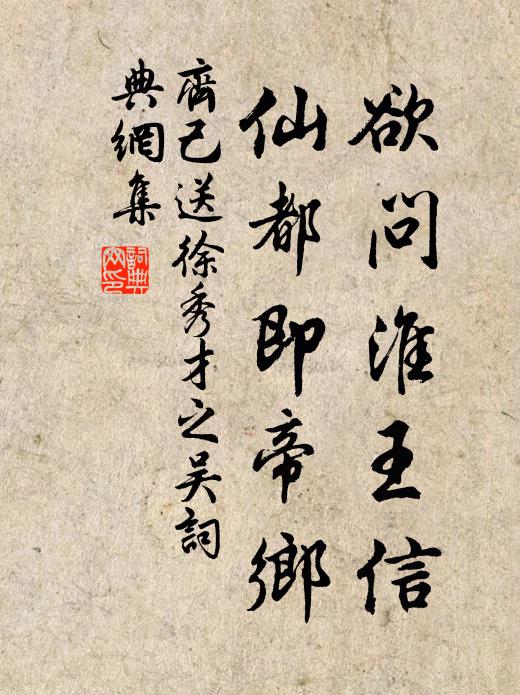 欲问淮王信
仙都即帝鄉
齊己送徐秀才之吴詞
典網集
詞典
网印